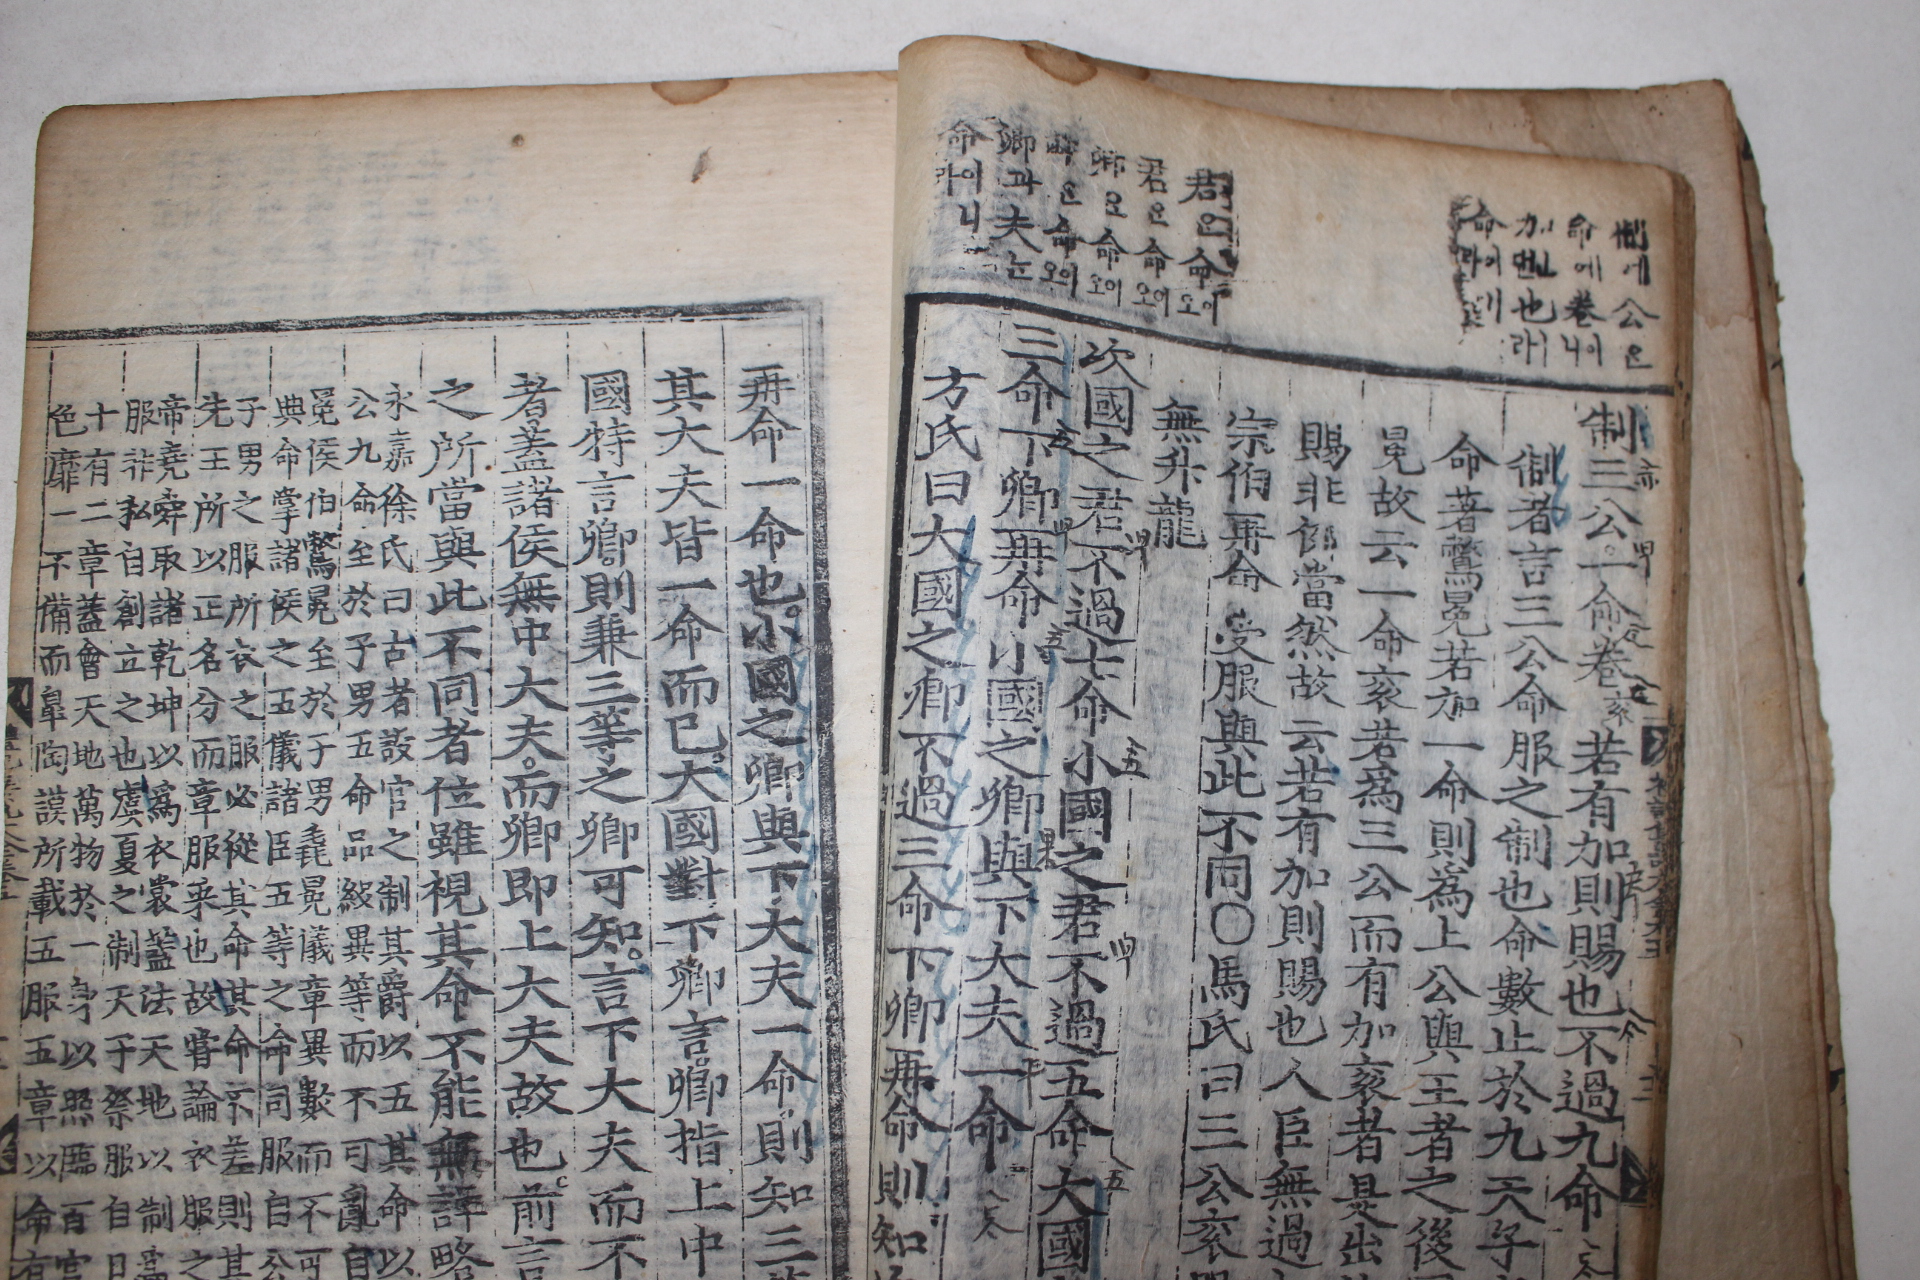 制에 公은
命에 卷니이
加면 也라
命이라
君은 命이오
君은 命이오
卿은 命이오
은 命이오
卿과 夫는
命이니라
制三公一命卷若有加則賜也不過九命
制者言三公命服之制也命數止於九天子
命著鷩冕若加一命則為上公與王者之後
冕故云一命衮若為三公而有加衮者是出
賜非例當然故云若有加則賜也人臣無過
宗伯再命受服與此不同○馬氏曰三公衮
無升龍
次國之君不過七命小國之君不過五命大國
三命下卿再命小國之卿與下大夫一命
方氏曰大國之卿不過三命下卿再命則知
再命一命也小國之卿與下大夫一命則知三
其大夫皆一命而已大國對下卿言卿指上中
國特言卿則兼三等之卿可知言下大夫而不
者蓋諸侯無中大夫而卿即上大夫故也前言
之所當與此不同者位雖視其命不能無詳略
永嘉徐氏曰古者設官之制其爵以五其命以
公九命至於子男五命品級異等而不可亂自
冕侯伯鷩冕至於子男毳冕儀章異數而不可
典命掌諸侯之五儀諸臣五等之命同服自公
子男之服所衣之服必從其命其命不差則其
先王所以正名分而章服采也故嘗論衣服之
帝堯舜取諸乾坤以為衣裳蓋法天地以制
服非私自創立之也虞夏之制天子祭服自日
十有二章蓋會天地萬物於一身以照臨百官
色靡一不備而皐陶謨所載五服五章以命有